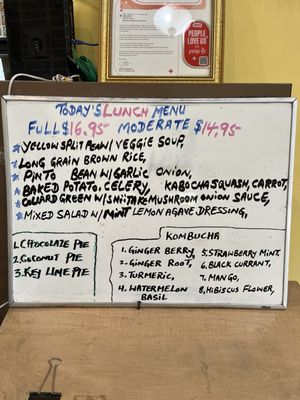 PEOPLE
LOVE US
on yelp
TODAY'S LUNCH MENU
FULL $16.95 MODERATE $14.95
YELLOW SPLIT PEA W/ VEGGIE SOUP,
LONG GRAIN BROWN RICE,
PINTO BEAN W/ GARLIC ONION,
BAKED POTATO, CELERY, KABOCHA SQUASH, CARROT,
COLLARD GREEN W/ SHIITAKE MUSHROOM ONION SAUCE,
MIXED SALAD W/ MINT LEMON AGAVE DRESSING,
1. CHOCOLATE PIE
2. COCONUT PIE
3. KEY LIME PIE
KOMBUCHA
1. GINGER BERRY,
2. GINGER ROOT,
3. TURMERIC,
4. WATERMELON
BASIL
5. STRAWBERRY MINT,
6. BLACK CURRANT,
7. MANGO,
8. HIBISCUS FLOWER,